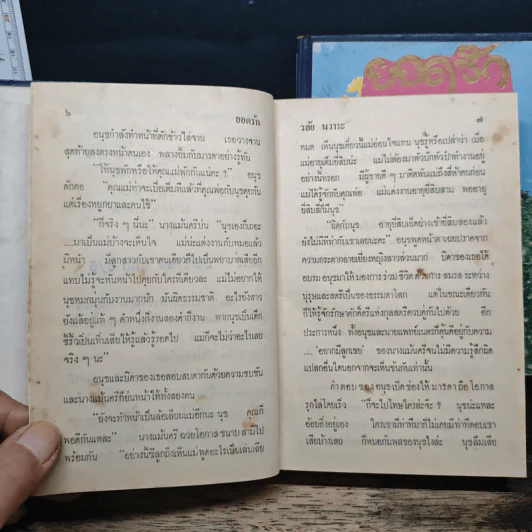 ยอดรัก
๖
ยอดรัก
อนุชกำลังทำหน้าที่ตักข้าวใส่จาน เธอวางจาน
สุดท้ายลงตรงหน้าตนเอง พลางยิ้มกับมารดาอย่างรู้ทัน
"ให้นุชพักหรือให้คุณแม่พักกันแน่คะ ?" อนุช
ดักคอ "คุณแม่ทำจะเบื่อเต็มทีแล้วที่คุณพ่อกับนุชคุยกัน
แต่เรื่องหยูกยาและคนไข้"
"ก็จริง ๆ นี่นะ" นางแม้นศรีบ่น "นุชเองก็เถอะ
....มาเป็นแม่บ้างจะเห็นใจ แม่น่ะแต่งงานกับหมอแล้ว
มิหนำ มีลูกสาวกับเขาคนเดียวก็ไปเป็นพยาบาลเสียอีก
แทบไม่รู้จะหันหน้าไปคุยกับใครที่เดียวละ แม่ไม่อยากให้
นุชหมกมุ่นกับงานมากนัก มันผิดธรรมชาติ อะไรยังสาว
ยังแส้อยู่แท้ ๆ คำหนึ่งก็งานสองคำก็งาน หากนุชเป็นเด็ก
ขี้ริ้วเป็นเห็นเสีย ให้รู้แล้วรู้รอดไป แม่ก็จะไม่ว่าอะไรเลย
จริง ๆ นะ"
อนุชและบิดาของเธอสอบสบตากันด้วยความขบขัน
และนางแม้นศรีก็ยื่นหน้าให้ทั้งสองคน
"ยังจะทำหน้าเป็นล้อเลียนแม่อีกนะ นุช คุณก็
พอดีกันแหละ" นางแม้นศรี ฉวยโอกาส ขนาบ สามีไป
พร้อมกัน "อย่างนี้ซีลูกถึงเห็นแม่พูดอะไรเป็นเล่นเสีย
วลัย นวาระ
๗
หมด เห็นนุชเดียวนี้แม่อ่อนใจแทน นุชรู้หรือเปล่าว่า เมื่อ
แม่อายุเต็มยี่สิบน่ะ แม่ไม่ต้องมาตัวปักหัวปำทำงานอยู่
อย่างนี้หรอก มีผู้ชายดี ๆ มาติดพันแม่ถึงสี่ห้าคนก่อน
แม่ได้รู้จักกับคุณพ่อ แม่แต่งงานอายุยี่สิบสาม พออายุ
ยี่สิบสี่ก็มีนุช
"ผิดกับนุช อายุยี่สิบเอ็ดย่างเข้ายี่สิบสองแล้ว
ยังไม่มีทีท่ากับเขาเลยนะคะ" อนุชพูดหน้าตาเฉยปราศจาก
ความกระดากอายเยี่ยงหญิงสาวส่วนมาก บิดาของเธอได้
อบรม อนุชมาให้ มองการ ร่วม ชีวิต ด้วยการ สมรส ระหว่าง
บุรุษและสตรีเป็นของธรรมดาโลก แต่ในขณะเดียวกัน
ก็ให้รู้จักรักษาศักดิ์ศรีแห่งกุลสตรีควบคู่กันไปด้วย อีก
ประการหนึ่ง ทั้งอนุชและนายแพทย์เนตรก็คุ้นคือยู่กับความ
....."อยากมีลูกเขย" ของนางแม้นศรีจนไม่มีความรู้สึกผิด
แปลกอื่นใดนอกจากจะเห็นขันกันเท่านั้น
คำตอบ ของ อนุช เปิด ช่อง ให้ มารดา ถือ โอกาส
รุกไล่โดยเร็ว "ก็จะไปโทษใครล่ะจ๊ะ ? นุชนะแหละ